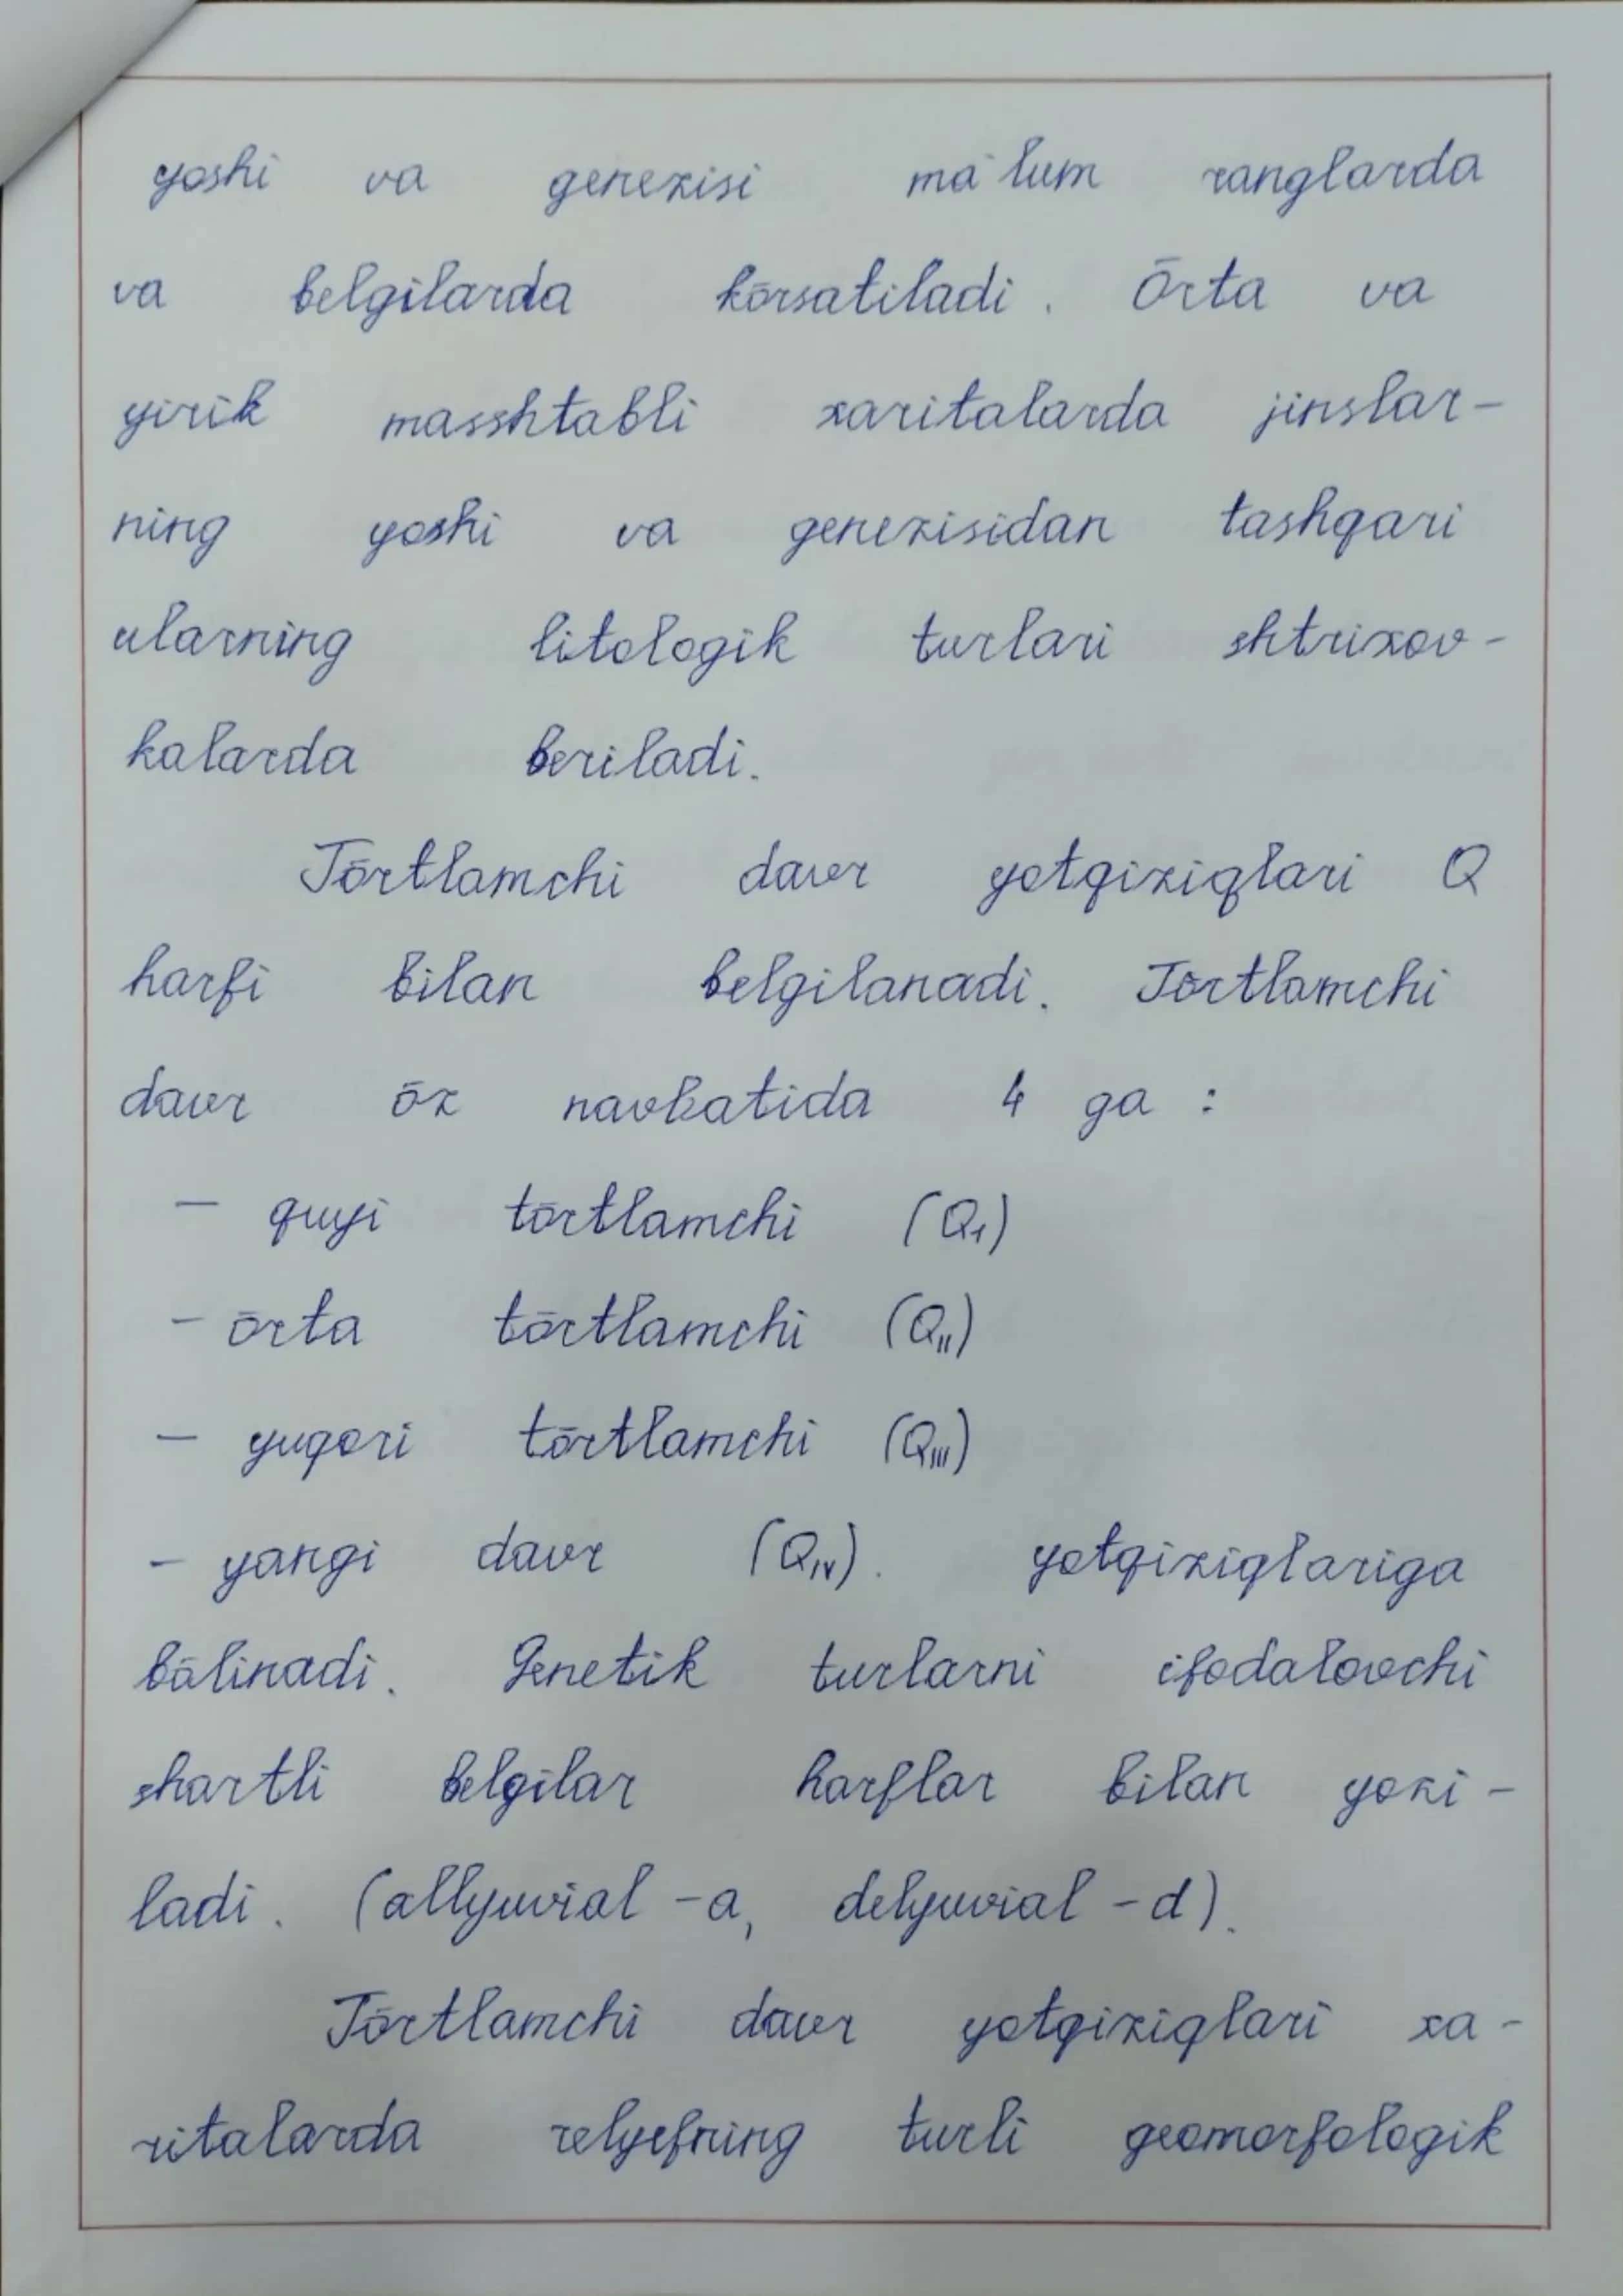 yoshi va genezisi ma'lum ranglarda
va belgilarda kōrsatiladi. Ōrta va
yirik masshtabli xaritalarda jinslar-
ning yoshi va genezisidan tashqari
ularning litologik turlari shtrixov-
kalarda beriladi.
Tōrtlamchi davr yotqiziqlari Q
harfi bilan belgilanadi. Tōrtlamchi
davr ōz navbatida 4 ga :
- quyi tōrtlamchi (Qı)
- ōrta tōrtlamchi (Qıı)
- yuqori tōrtlamchi (Qııı)
- yangi davr (Qıv). yotqiziqlariga
bōlinadi. Genetik turlarni ifodalovchi
shartli belgilar harflar bilan yozi-
ladi. (allyuvial -a, delyuvial -d).
Tōrtlamchi davr yotqiziqlari xa-
ritalarda relyefning turli geomorfologik